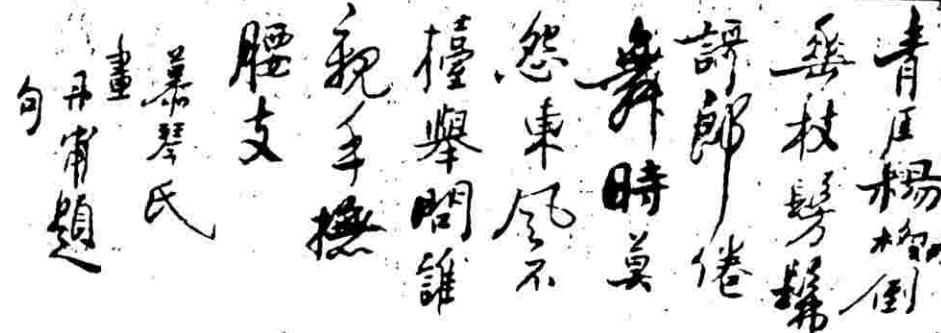 青厓楊柳倒
垂枝髣髴
郎倦
舞時莫
怨東風不
擡舉問誰
親手撫
腰支
慕琴氏
畫
丹甫題
句